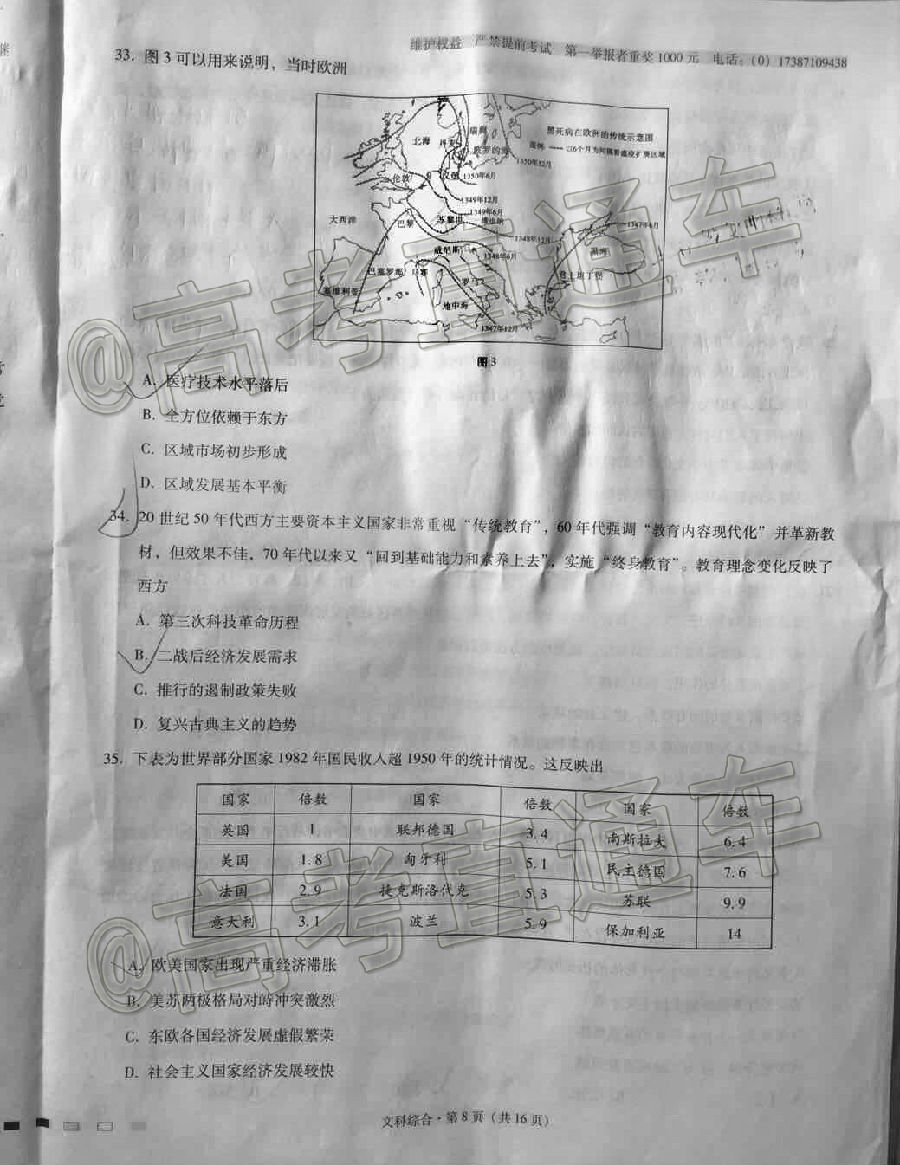 维护权益 严禁提前考试 第一举报者重奖1000元 电话：(0) 17387109438
33. 图3可以用来说明，当时欧洲
黑死病在欧洲的传统示意图
1350年12月
北海
瑞典
丹麦
波罗的海
伦敦
汉堡
1350年6月
1349年12月
1349年6月
大西洋
巴黎
苏黎世
维也纳
1348年12月
1347年6月
威尼斯
1348年6月
黑海
巴塞罗那
马赛
君士坦丁堡
塞维利亚
罗马
地中海
1347年12月
图3
A. 医疗技术水平落后
B. 全方位依赖于东方
C. 区域市场初步形成
D. 区域发展基本平衡
34. 20世纪50年代西方主要资本主义国家非常重视“传统教育”，60年代强调“教育内容现代化”并革新教
材，但效果不佳，70年代以来又“回到基础能力和素养上去”，实施“终身教育”。教育理念变化反映了
西方
A. 第三次科技革命历程
B. 二战后经济发展需求
C. 推行的遏制政策失败
D. 复兴古典主义的趋势
35. 下表为世界部分国家1982年国民收入超1950年的统计情况。这反映出
国家 倍数 国家 倍数 国家 倍数
英国 1 联邦德国 3.4 南斯拉夫 6.4
美国 1.8 匈牙利 5.1 民主德国 7.6
法国 2.9 捷克斯洛伐克 5.3 苏联 9.9
意大利 3.1 波兰 5.9 保加利亚 14
A. 欧美国家出现严重经济滞胀
B. 美苏两极格局对峙冲突激烈
C. 东欧各国经济发展虚假繁荣
D. 社会主义国家经济发展较快
文科综合·第8页（共16页）
@高考直通车
@高考直通车